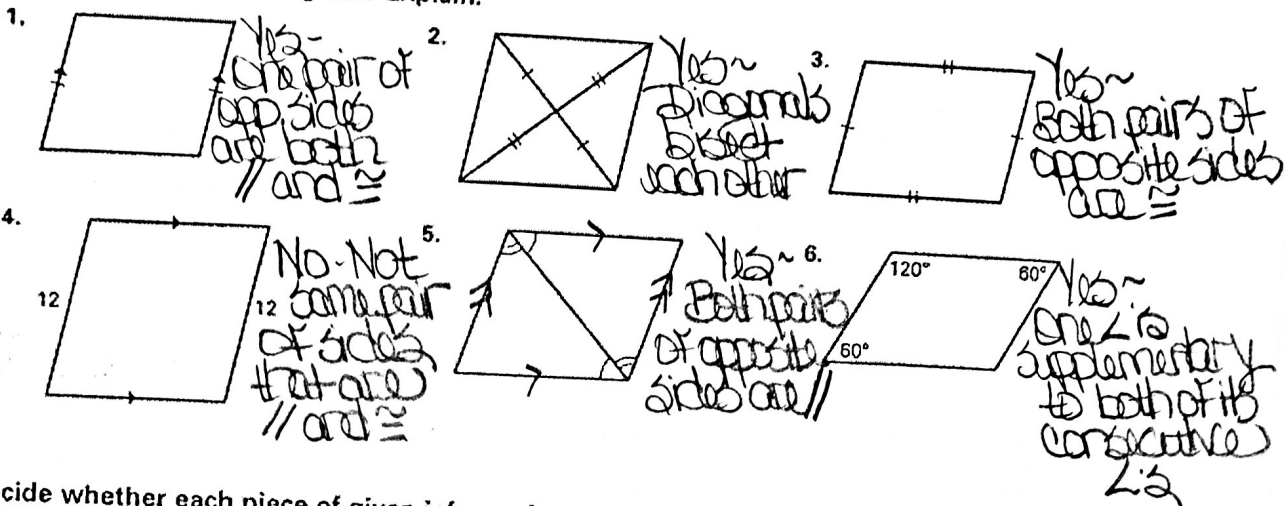 explain.
1.
Yes-
One pair of
opp. sides
are both
// and ≅
2.
Yes~
Diagonals
bisect
each other
3.
Yes~
Both pairs of
opposite sides
are ≅
4.
12
12
No-Not
same pair
of sides
that are
// and ≅
5.
Yes~
Both pairs
of opposite
sides are //
6.
120°
60°
60°
Yes~
One ∠ is
supplementary
to both of its
consecutive
∠'s
cide whether each piece of given